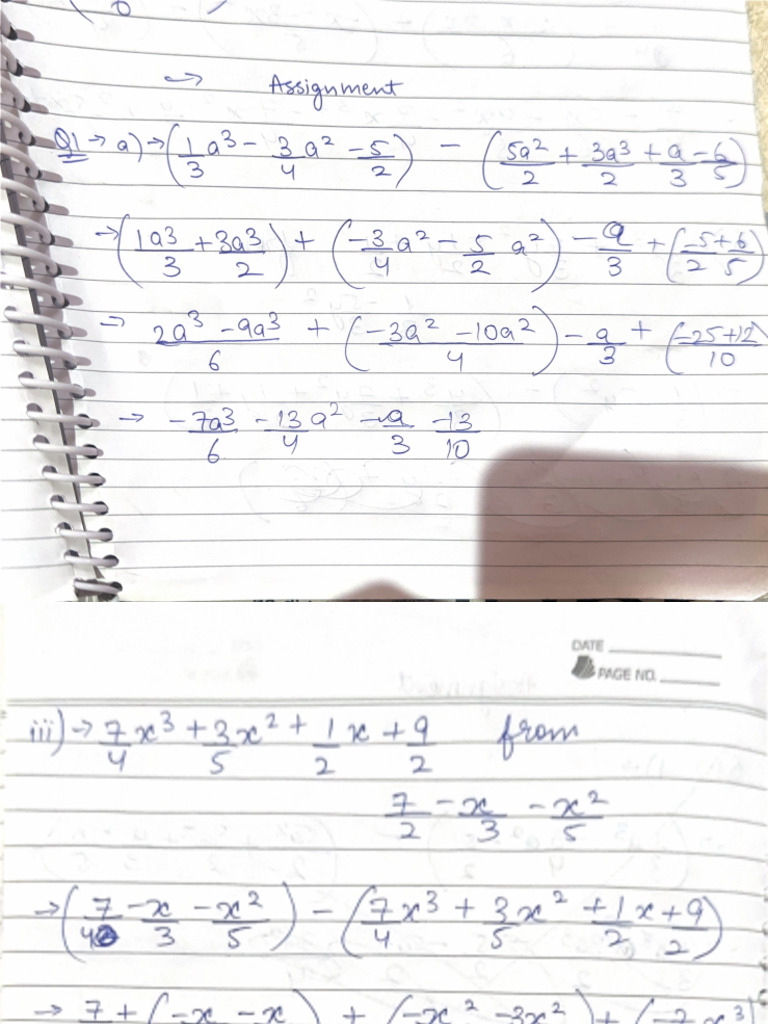 → Assignment
Q1 → a) → (1/3 a³ - 3/4 a² - 5/2) - (5a²/2 + 3a³/2 + a/3 - 6/5)
→ (1a³/3 + 3a³/2) + (-3/4 a² - 5/2 a²) - a/3 + (-5/2 + 6/5)
→ 2a³ - 9a³/6 + (-3a² - 10a²/4) - a/3 + (-25+12/10
→ -7a³/6 - 13/4 a² - a/3 - 13/10
DATE
PAGE NO.
iii) → 7/4 x³ + 3/5 x² + 1/2 x + 9/2 from
7/2 - x/3 - x²/5
→ (7/4 - x/3 - x²/5) - (7/4 x³ + 3/5 x² + 1/2 x + 9/2)
→ 7 + (-x - x) + (-x² - 3x²) + (-7x³)